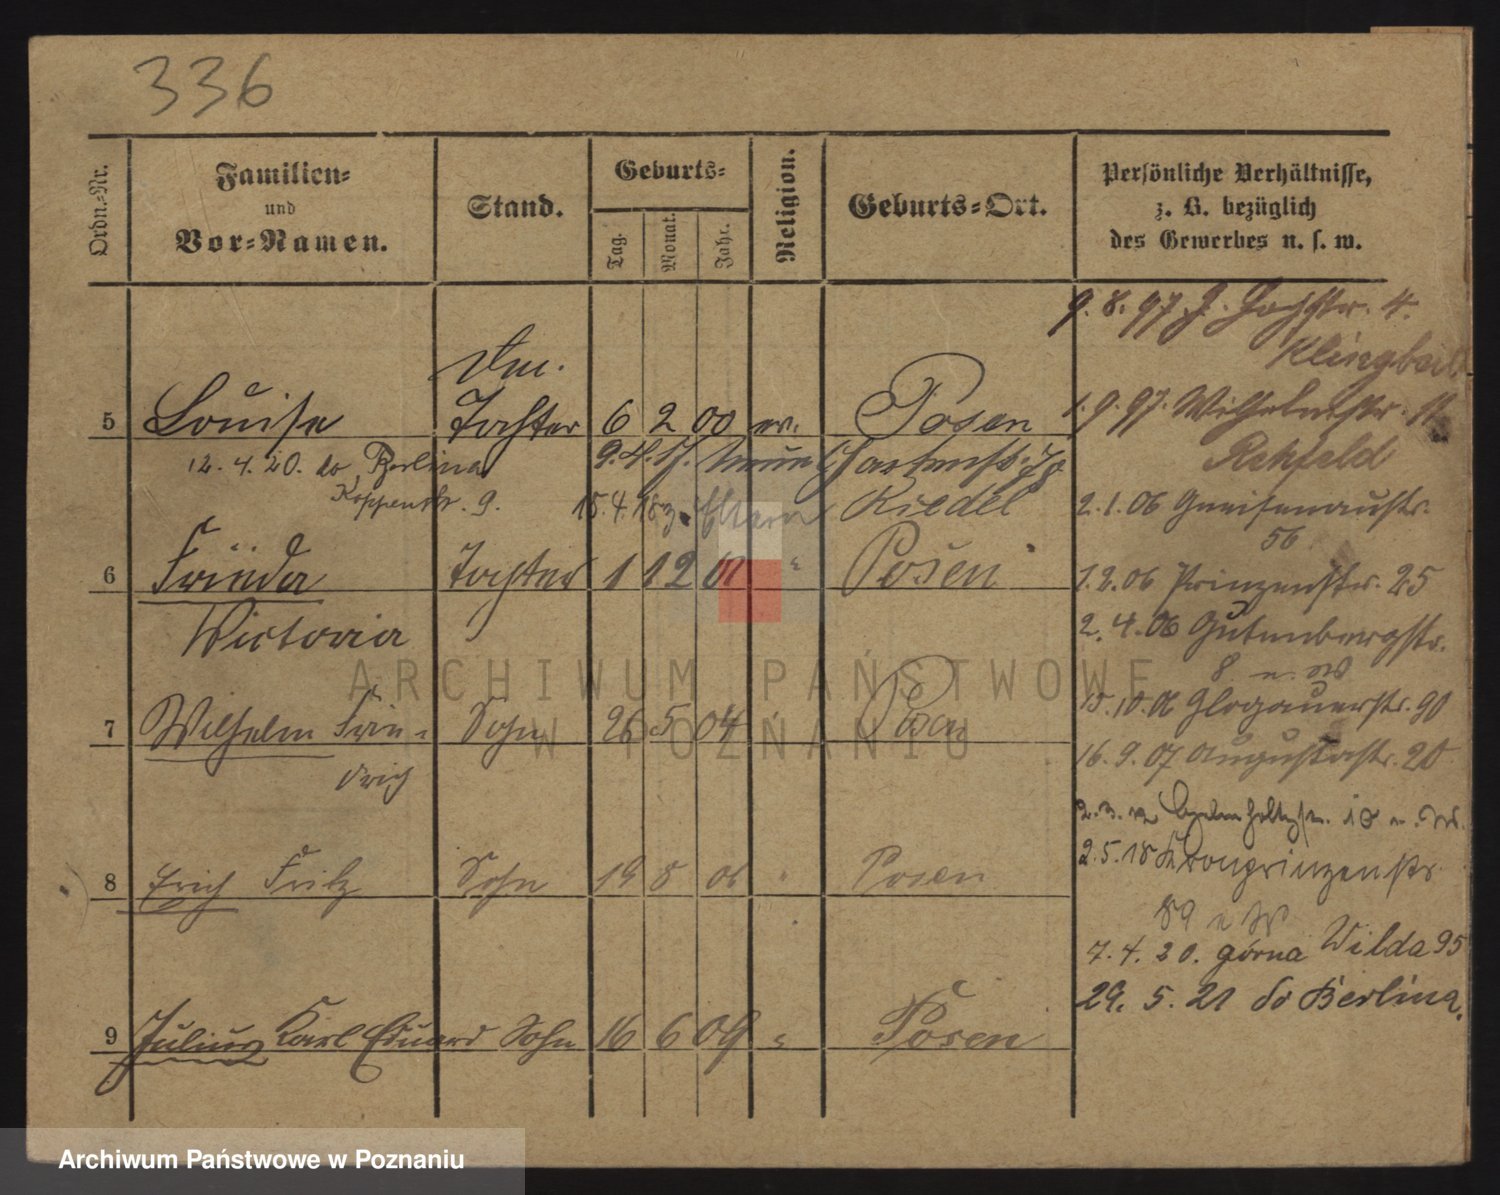 336
Ordn.-Nr.
Familien-
und
Vor-Namen.
Stand.
Geburts-
Tag.
Monat.
Jahr.
Religion.
Geburts-Ort.
Persönliche Verhältnisse,
z. B. bezüglich
des Gewerbes u. s. w.
9. 8. 97. J. 4.
Klingbeil
5 Louise Tochter 6 2 00 ev. Posen
1. 9. 97. Wilhelmstr. 11
Rehfeld
12. 4. 20. do Berlina
Koppenstr. 9.
9. 4. 17. Gartenstr.
Riedel
15. 4. 18 z. Eltern
2. 1. 06 Gneisenaustr.
56
6 Frieda Tochter 1 12 01 " Posen
Victoria
1. 2. 06 Prinzenstr. 25
2. 4. 06 Gutenbergstr.
8 n. W
7 Wilhelm Frie- Sohn 26 5 04 " Posen
drich
15. 10. 06 Glogauerstr. 90
16. 9. 07 Augustastr. 20
2. 3. 12 18 n. W.
8 Erich Fritz Sohn 19 8 06 " Posen
2. 5. 18 Kronprinzenstr
89 n W
7. 4. 20. górna Wilda 95
29. 5. 21 do Berlina.
9 Julius Karl Eduard Sohn 16 6 09 " Posen
ARCHIWUM PAŃSTWOWE
W POZNANIU
Archiwum Państwowe w Poznaniu